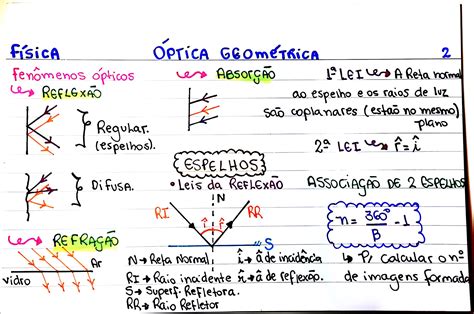 FÍSICA
ÓPTICA GEOMÉTRICA
2
Fenômenos ópticos
REFLEXÃO
Regular.
(espelhos).
Difusa.
REFRAÇÃO
Ar
vidro
ABSORÇÃO
ESPELHOS
• Leis da REFLEXÃO
N
RI
RR
î
r̂
S
N → Reta Normal
î → â de incidência
RI → Raio incidente
r̂ → â de reflexão.
S → Superf. Refletora.
RR → Raio Refletor
1ª LEI → A Reta normal
ao espelho e os raios de luz
são coplanares (estão no mesmo)
plano
2ª LEI → r̂ = î
ASSOCIAÇÃO DE 2 ESPELHOS
n = 360° / B - 1
→ P/ calcular o nº
de imagens formada